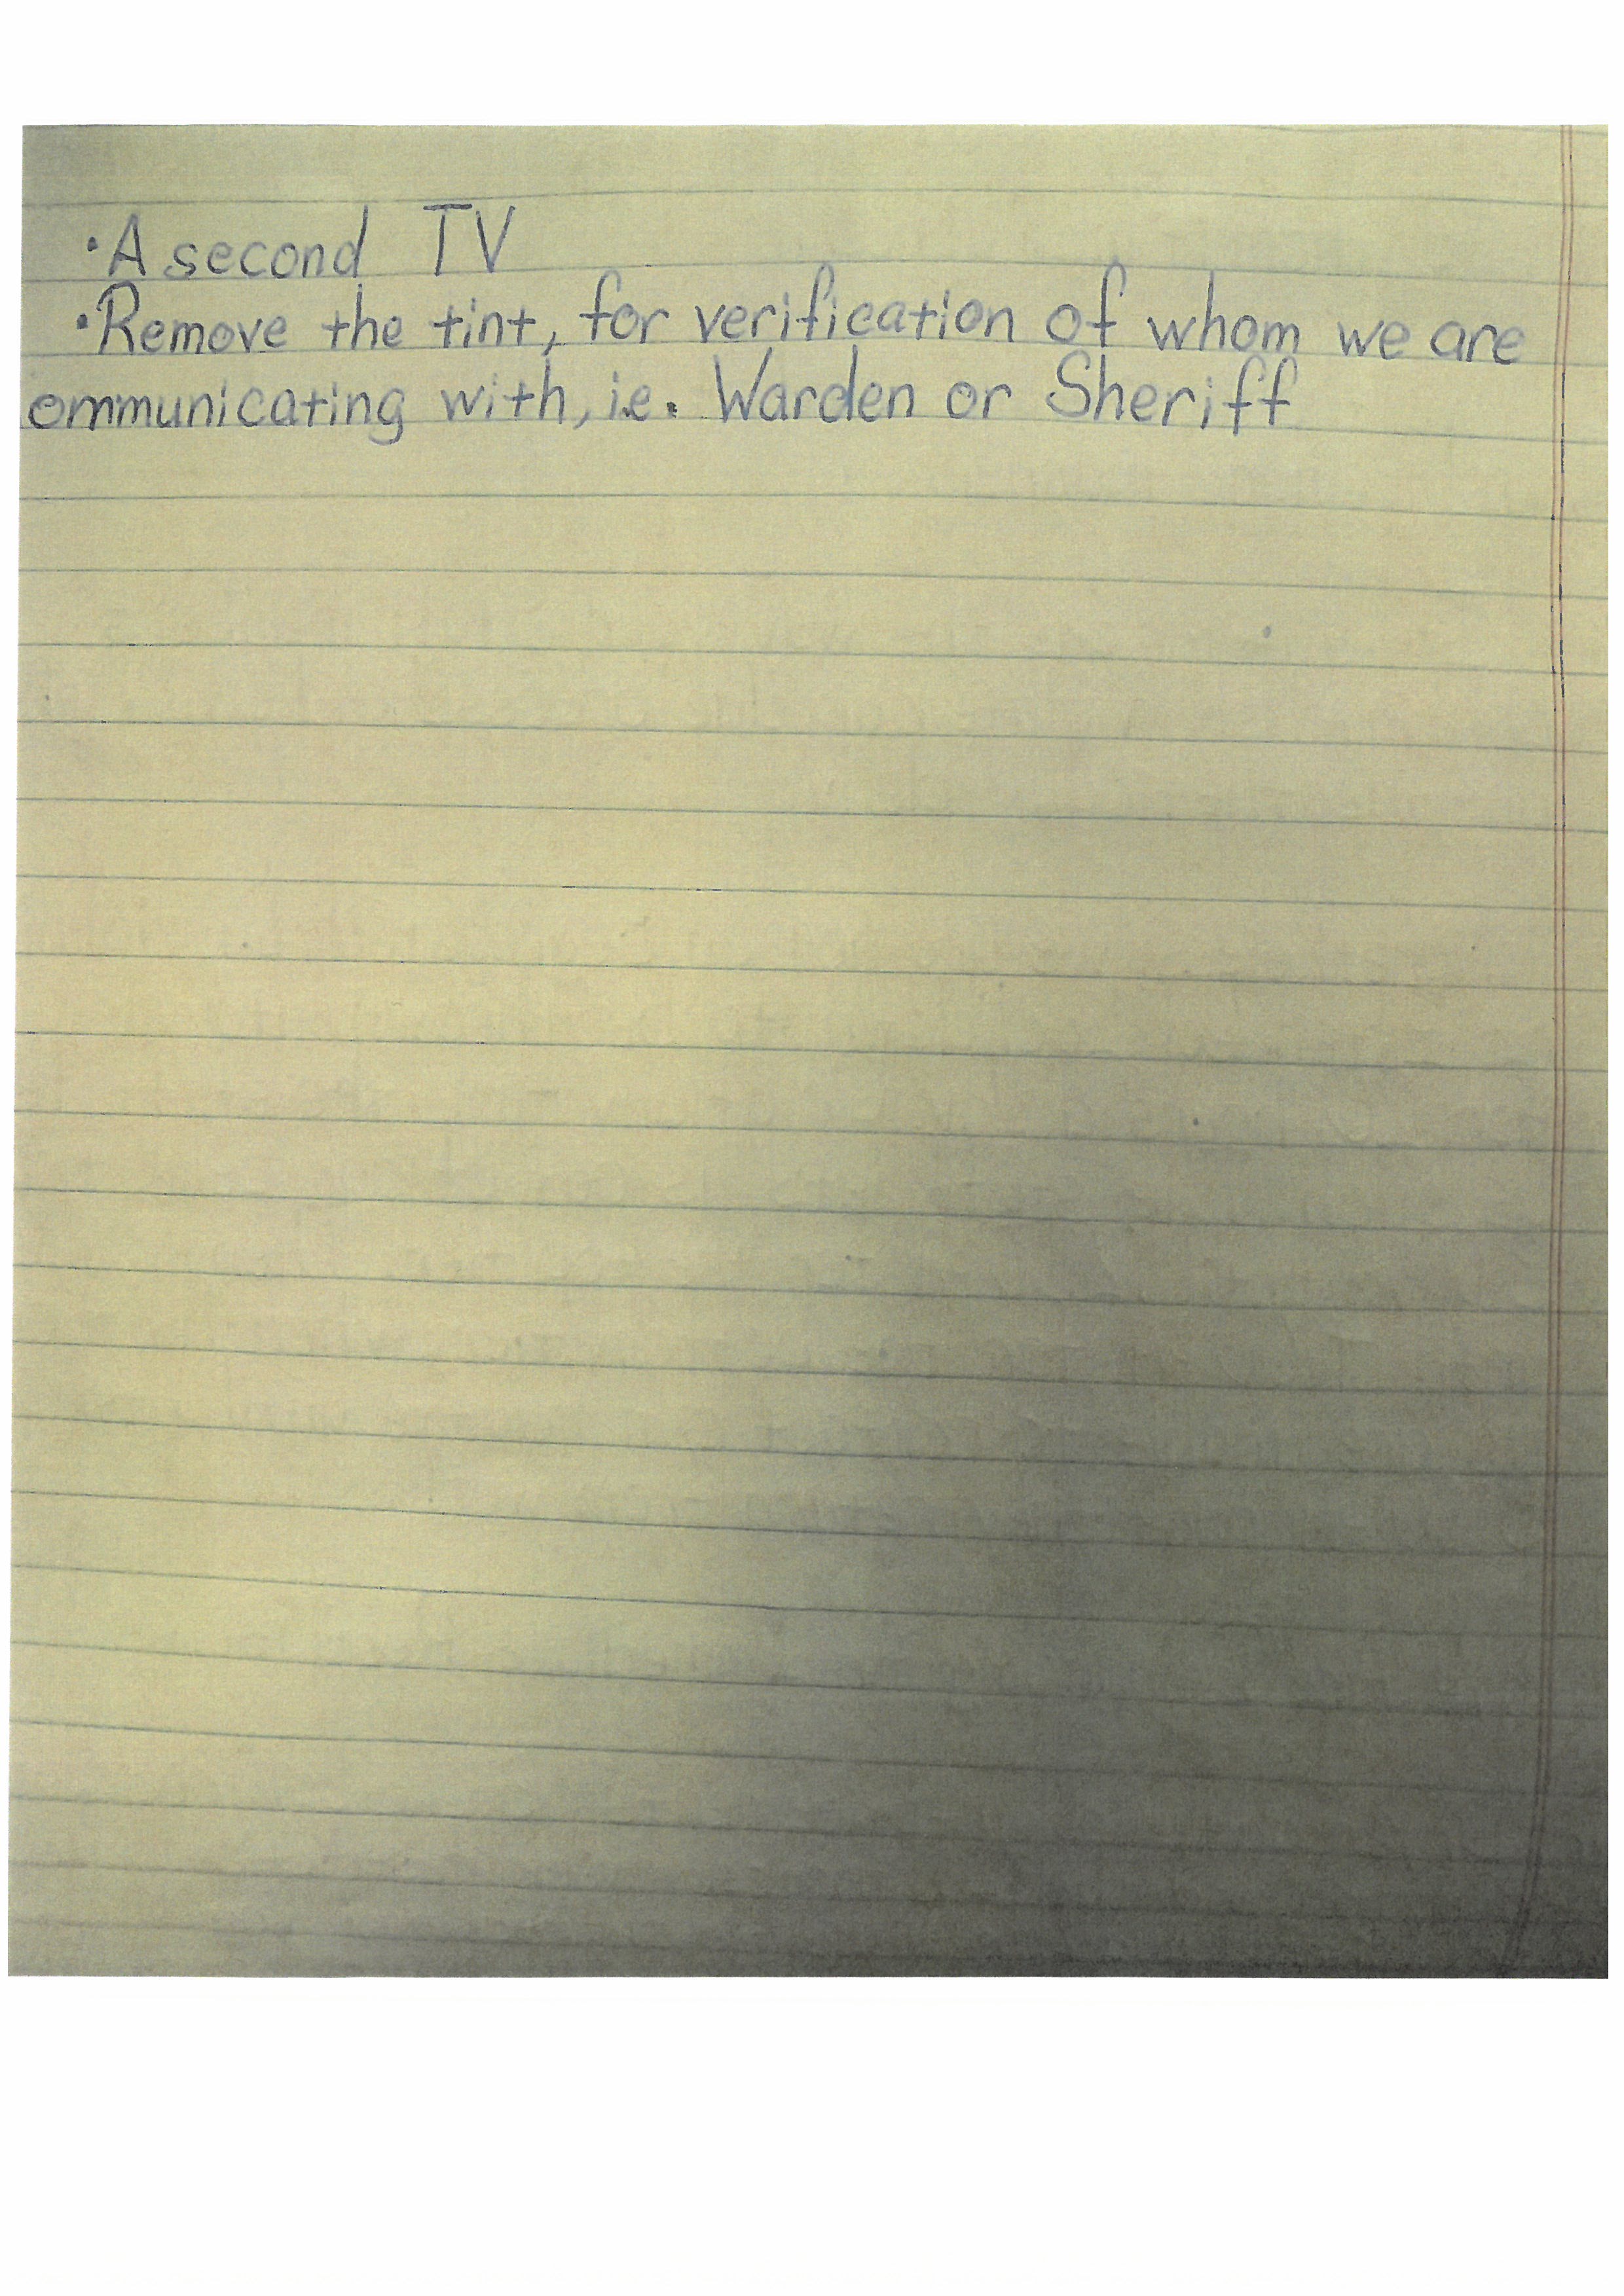 ·A second TV
·Remove the tint, for verification of whom we are
ommunicating with, i.e. Warden or Sheriff